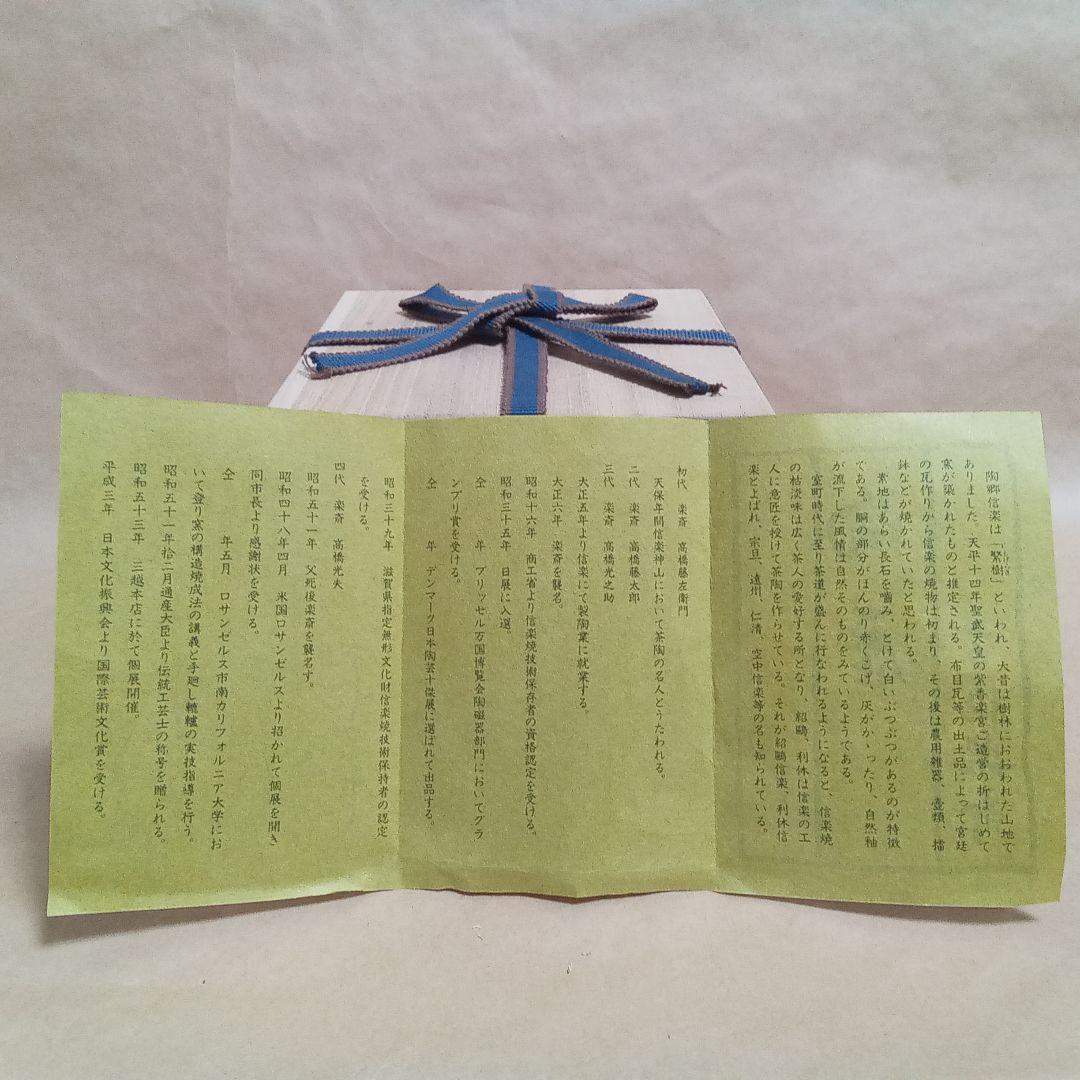 陶郷信楽は「繁樹」といわれ、大昔は樹林におおわれた山地で
ありました。天平十四年聖武天皇の紫香楽宮ご造営の折はじめて
窯が築かれたものと推定される。布目瓦等の出土品によって宮廷
の瓦作りから信楽の焼物は初まり、その後は農用雑器、壷類、擂
鉢などが焼かれていたと思われる。
素地はあらい長石を噛み、とけて白いぶつぶつがあるのが特徴
である。胴の部分がほんのり赤くこげ、灰がかゝったり、自然釉
が流下した風情は自然そのものをみているようである。
室町時代に至り茶道が盛んに行なわれるようになると、信楽焼
の枯淡味は広く茶人の愛好する所となり、紹鷗、利休は信楽の工
人に意匠を授けて茶陶を作らせている。それが紹鷗信楽、利休信
楽とよばれ、宗旦、遠州、仁清、空中信楽等の名も知られている。
初代　楽斎　高橋藤左衛門
天保年間信楽神山において茶陶の名人とうたわれる。
二代　楽斎　高橋藤太郎
三代　楽斎　高橋光之助
大正五年より信楽にて製陶業に就業する。
大正六年　楽斎を襲名。
昭和十六年　商工省より信楽焼技術保存者の資格認定を受ける。
昭和三十五年　日展に入選。
仝　年　ブリッセル万国博覧会陶磁器部門においてグラ
ンプリ賞を受ける。
仝　年　デンマーク日本陶芸十傑展に選ばれて出品する。
昭和三十九年　滋賀県指定無形文化財信楽焼技術保持者の認定
を受ける。
四代　楽斎　高橋光夫
昭和五十一年　父死後楽斎を襲名す。
昭和四十八年四月　米国ロサンゼルスより招かれて個展を開き
同市長より感謝状を受ける。
仝　年五月　ロサンゼルス市南カリフォルニア大学にお
いて登り窯の構造焼成法の講義と手廻し轆轤の実技指導を行う。
昭和五十一年拾二月通産大臣より伝統工芸士の称号を贈られる。
昭和五十三年　三越本店に於て個展開催。
平成三年　日本文化振興会より国際芸術文化賞を受ける。